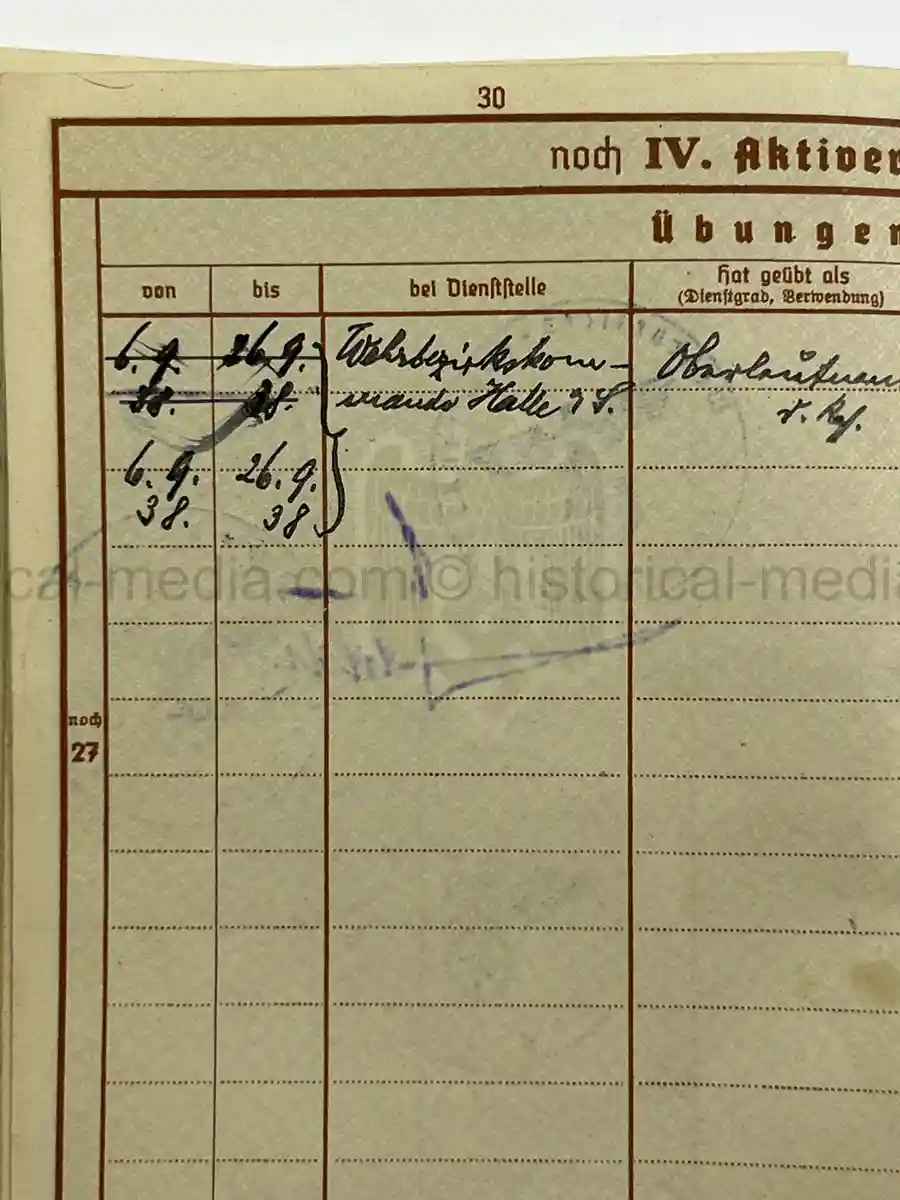 30
noch IV. Aktiver
Übungen
von bis bei Dienststelle Hat geübt als
(Dienstgrad, Verwendung)
6. 9. 26. 9. Wehrbezirkskom- Oberleutnan
38. 38. mando Halle a/S. d. Res.
6. 9. 26. 9.
38. 38
cal-media.com © historical-media
noch
27